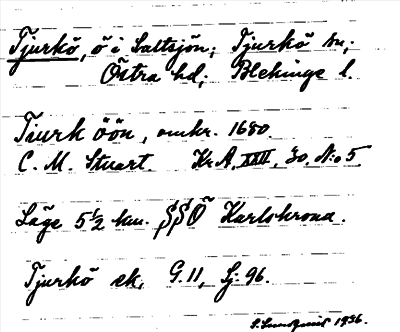 Tjurkö, ö i Saltsjön; Tjurkö sn;
Östra hd; Blekinge l.
Tiurk öön, omkr. 1680.
C. M. Stuart. Kr.A. XXII, 30, N:o 5
Läge 5½ km. SSÖ Karlskrona.
Tjurkö sk, G.11, Sj. 96.
1936.